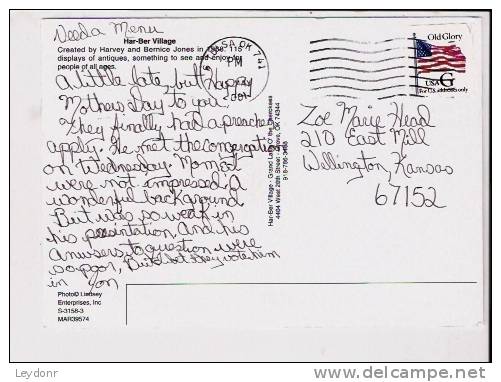 Need a Menu
Har-Ber Village
Created by Harvey and Bernice Jones in 1968. 115
displays of antiques, something to see and enjoy for
people of all ages.
A little late, but happy
Mothers Day to you-
They finally had a preacher
apply. He met the congregation
on Wednesday. Mom &
were not impressed. A
wonderful background
But was so weak in
his presentation, and his
answers to question were
so poor, But I bet they vote him
in
Har-Ber Village - Grand Lake O' the Cherokees
4404 West 20th Street - Grove, OK 74344
918-786-3488
Photo© Lindsey
Enterprises, Inc
S-3158-3
MAR39574
TULSA, OK 741
PM
Old Glory
USA G
For U.S. addresses only
Zoe Marie Head
210 East Mill
Wellington, Kansas
67152
Leydonr
delcampe.net